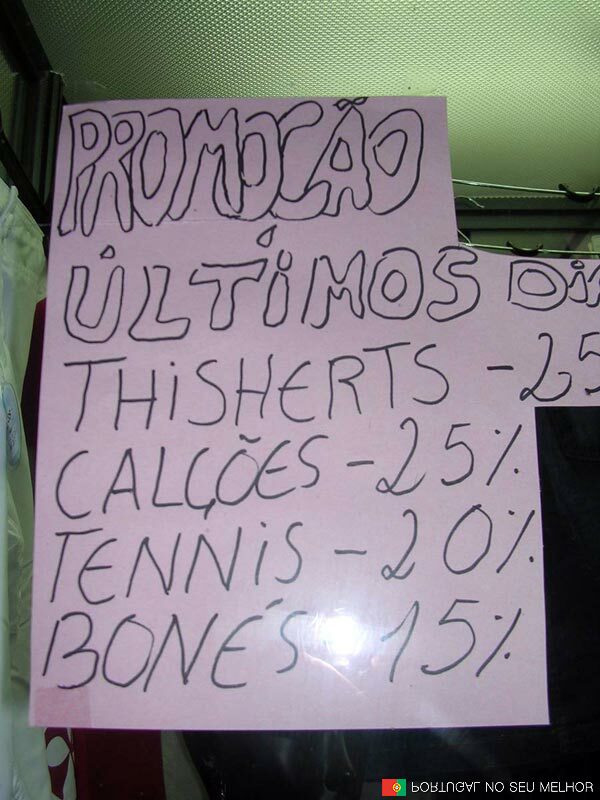 PROMOÇÃO
ÚLTIMOS DIA
THiSHERTS - 25
CALÇÕES - 25%
TENNiS - 20%
BONÉS - 15%
PORTUGAL NO SEU MELHOR